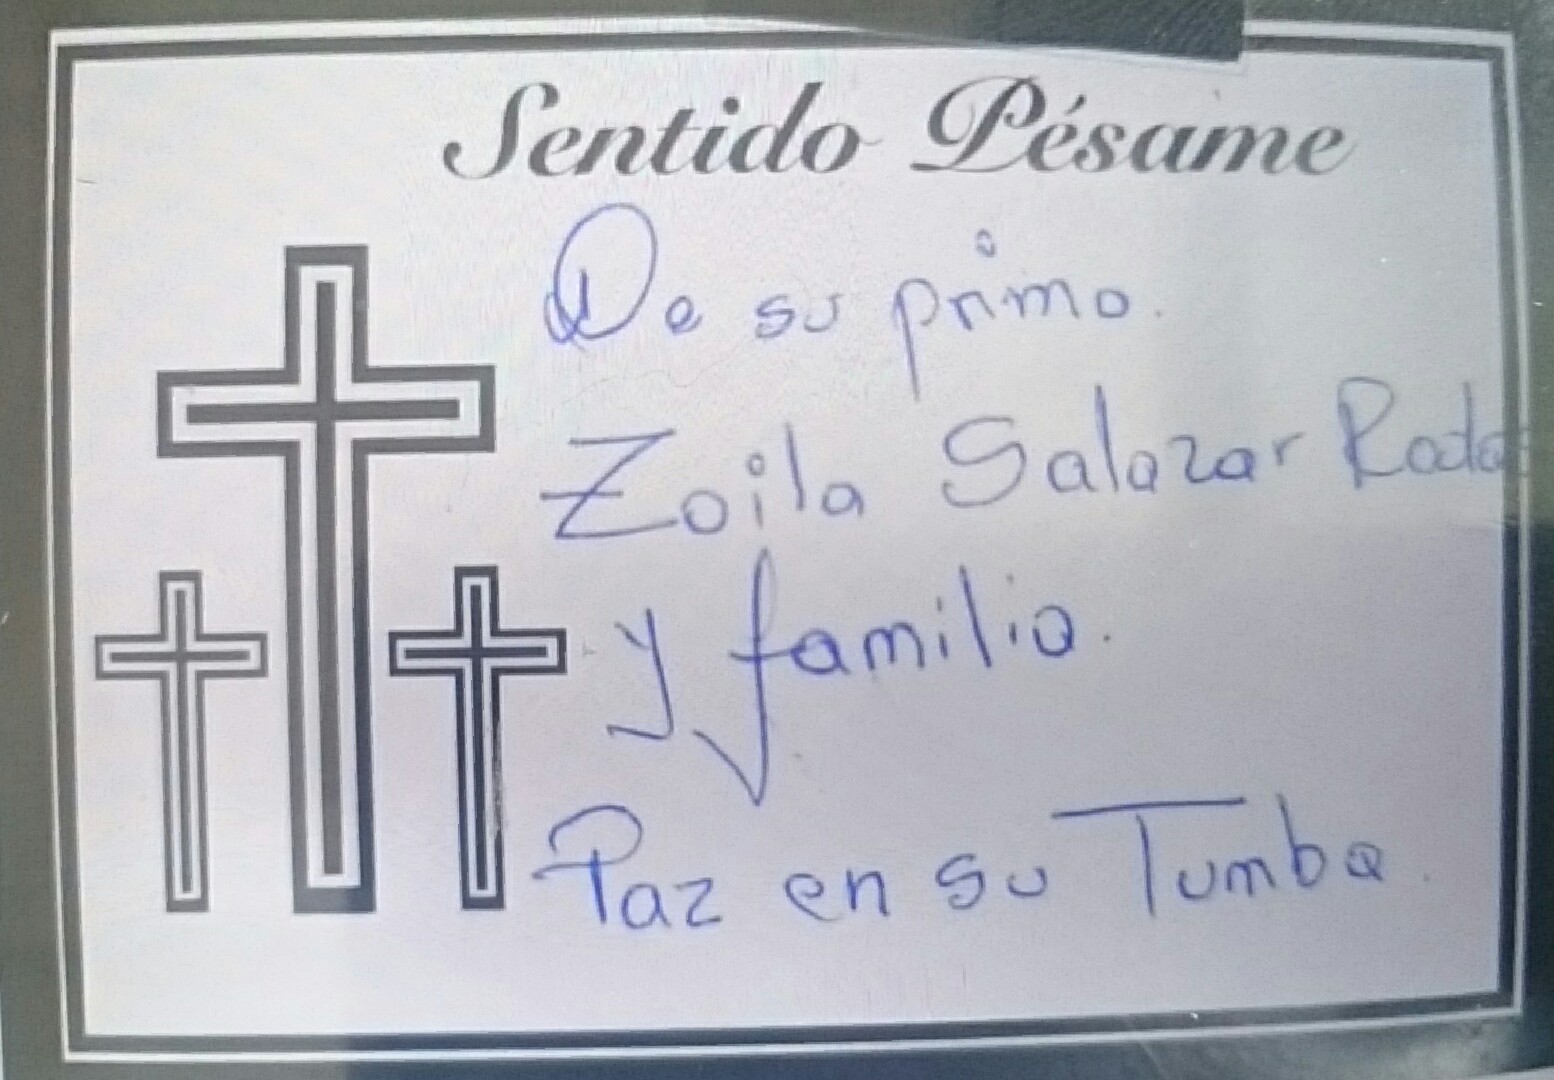 Sentido Pésame
De su primo.
Zoila Salazar
y familia.
Paz en su Tumba.